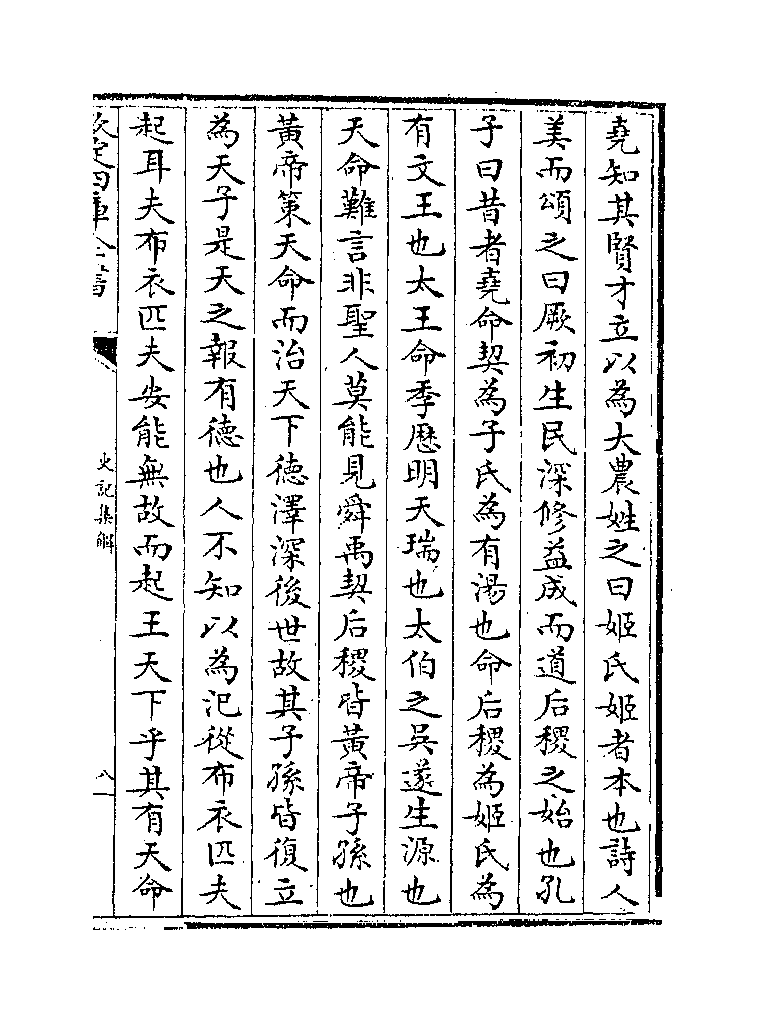 堯知其賢才立以為大農姓之曰姬氏姬者本也詩人
美而頌之曰厥初生民深修益成而道后稷之始也孔
子曰昔者堯命契為子氏為有湯也命后稷為姬氏為
有文王也太王命季歷明天瑞也太伯之吳遂生源也
天命難言非聖人莫能見舜禹契后稷皆黃帝子孫也
黃帝策天命而治天下徳澤深後世故其子孫皆復立
為天子是天之報有徳也人不知以為汜從布衣匹夫
起耳夫布衣匹夫安能無故而起王天下乎其有天命
欽定四庫全書
史記集解
八